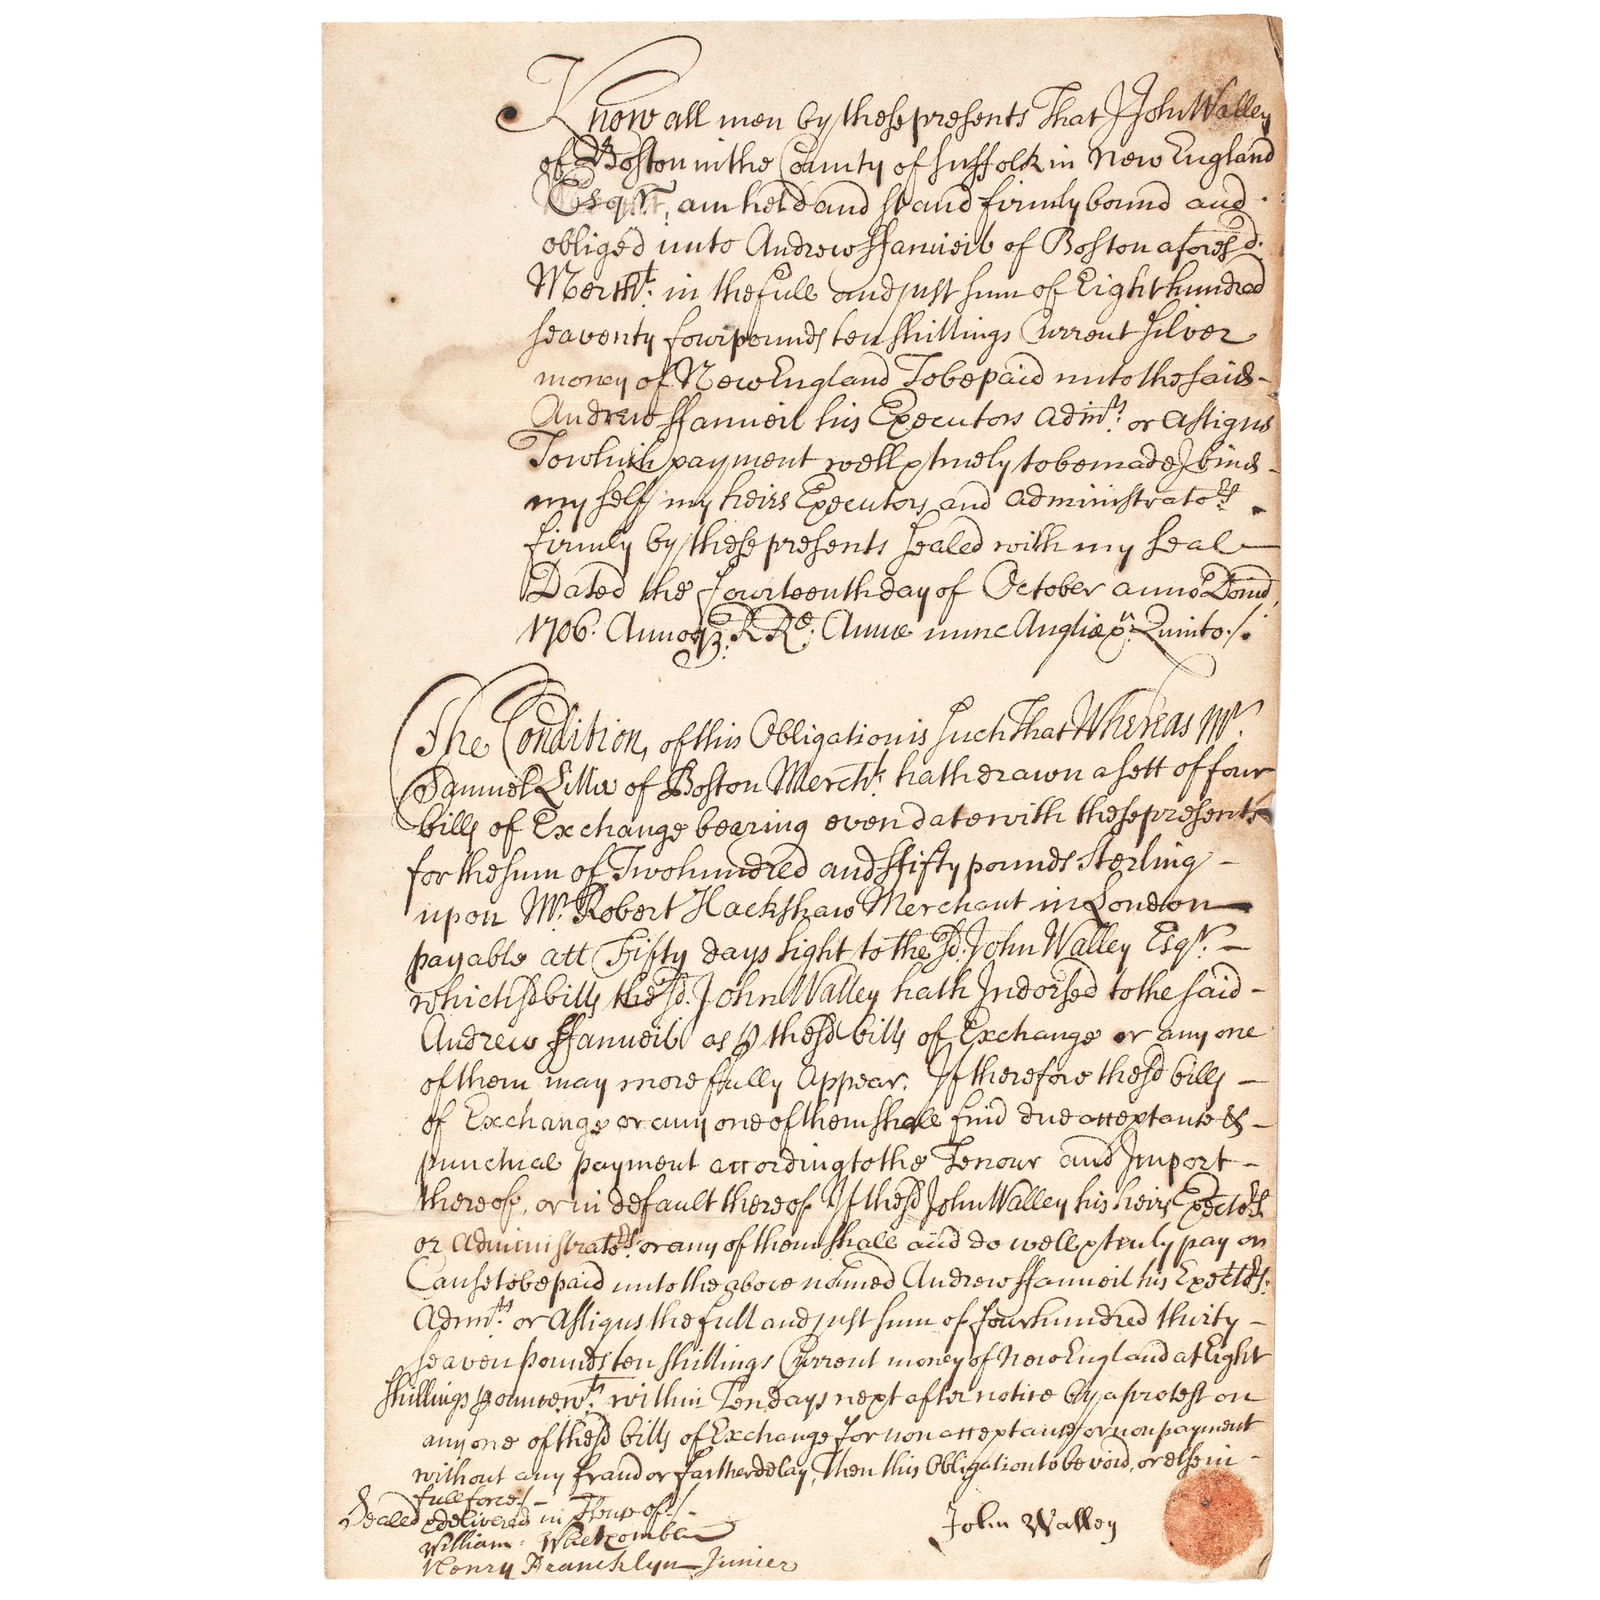 Know all men by these presents That I John Walley
of Boston in the County of Suffolk in New England
Esqr. am held and stand firmly bound and
obliged unto Andrew ffanueil of Boston aforesd.
Mercht. in the full and just sum of Eight hundred
seaventy four pounds ten shillings Current silver
money of New England To be paid unto the said -
Andrew ffanueil his Executors admrs. or assigns
To which payment well & truely to be made I bind -
my self my heirs Executors and administrators.
firmly by these presents sealed with my seal
Dated the fourteenth day of October anno Domi
1706. Annoq3. R Re. Annæ nunc Angliæ &c. Quinto./.
The Condition, of this Obligation is such That Whereas Mr.
Samuel Lillie of Boston Mercht. hath drawn a sett of four
bills of Exchange bearing even date with these presents
for the sum of Two hundred and ffifty pounds sterling -
upon Mr. Robert Hackshaw Merchant in London
payable att Fifty days sight to the sd. John Walley Esqr. -
which sd bills the sd. John Walley hath Indorsed to the said -
Andrew ffanueil as p the sd bills of Exchange or any one
of them may more fully Appear. If therefore the sd bills -
of Exchange or any one of them shall find due acceptance & -
punctual payment according to the Tenour and Import -
thereof, or in default thereof If the sd John Walley his heirs Exectors
or administrators. or any of them shall and do well & truly pay or
Cause to be paid unto the above named Andrew ffanueil his Exectors.
Admrs. or Assigns the full and just sum of four hundred thirty -
seaven pounds ten shillings Current money of New England at Eight
shillings p ounce wt. within Ten days next after notice by a protest on
any one of the sd bills of Exchange for non acceptance or non payment
without any fraud or farther delay, Then this Obligation to be void, or else in -
full force./-
Sealed & delivered in
William Whetcombe
Henry Francklyn Junier
John Walley